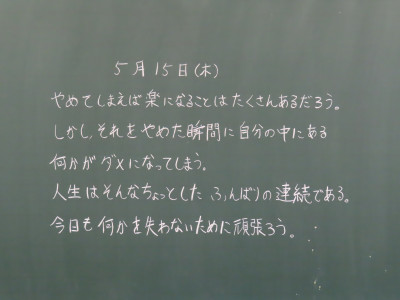 5月15日(木)
やめてしまえば楽になることはたくさんあるだろう。
しかし、それをやめた瞬間に自分の中にある
何かがダメになってしまう。
人生はそんなちょっとした ふんばりの連続である。
今日も何かを失わないために頑張ろう。